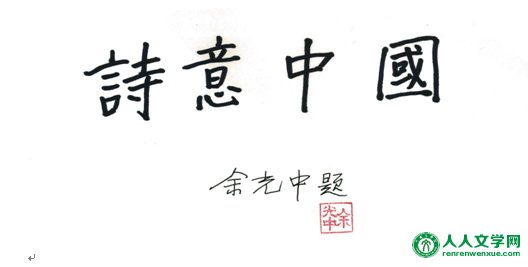 詩意中國
余光中題
余光中
人人文学网
renrenwenxue.com